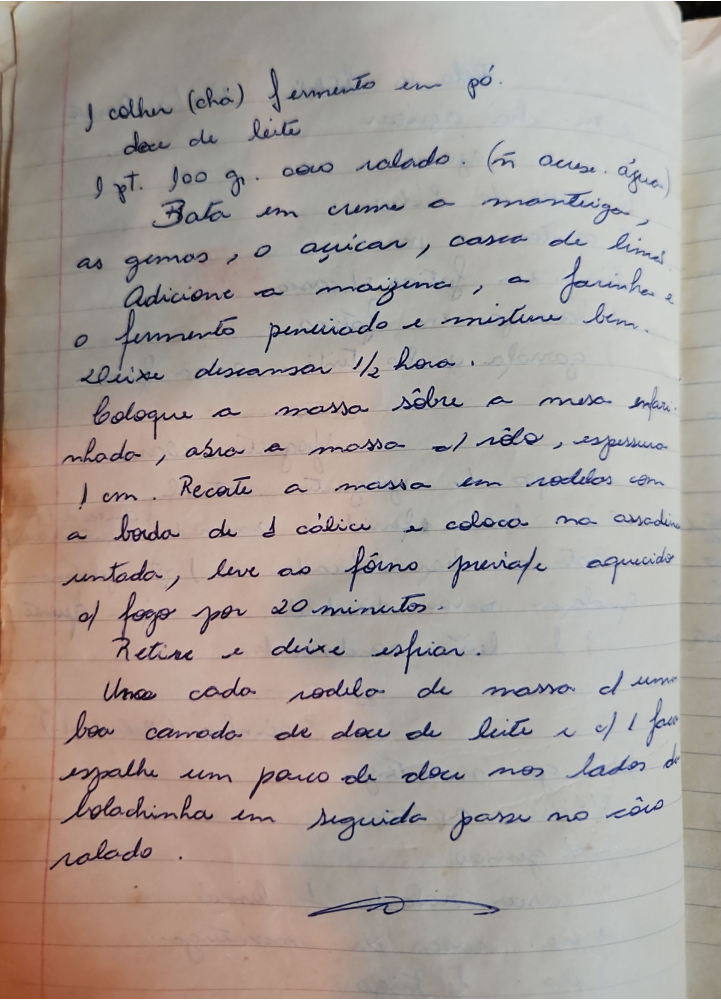 1 colher (chá) fermento em pó.
doce de leite
1 pt. 100 gr. coco ralado. (ñ acresc. água)
Bata em creme a manteiga,
as gemas, o açúcar, casca de limã
Adicione a maizena, a farinha e
o fermento peneirado e misture bem.
Deixe descansar 1/2 hora.
Coloque a massa sôbre a mesa enfari-
nhada, abra a massa c/ rôlo, espessura
1 cm. Recorte a massa em rodelas com
a borda de 1 cálice e coloca na assadeira
untada, leve ao fôrno previa/e aquecido
c/ fogo por 20 minutos.
Retire e deixe esfriar.
Una cada rodela de massa c/ uma
boa camada de doce de leite e c/ 1 faca
espalhe um pouco de doce nos lados da
bolachinha em seguida passe no côco
ralado.